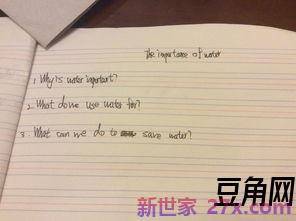 The importance of water
1. Why is water important?
2. What do we use water for?
3. What can we do to save water?
新世家 27x.com
豆角网